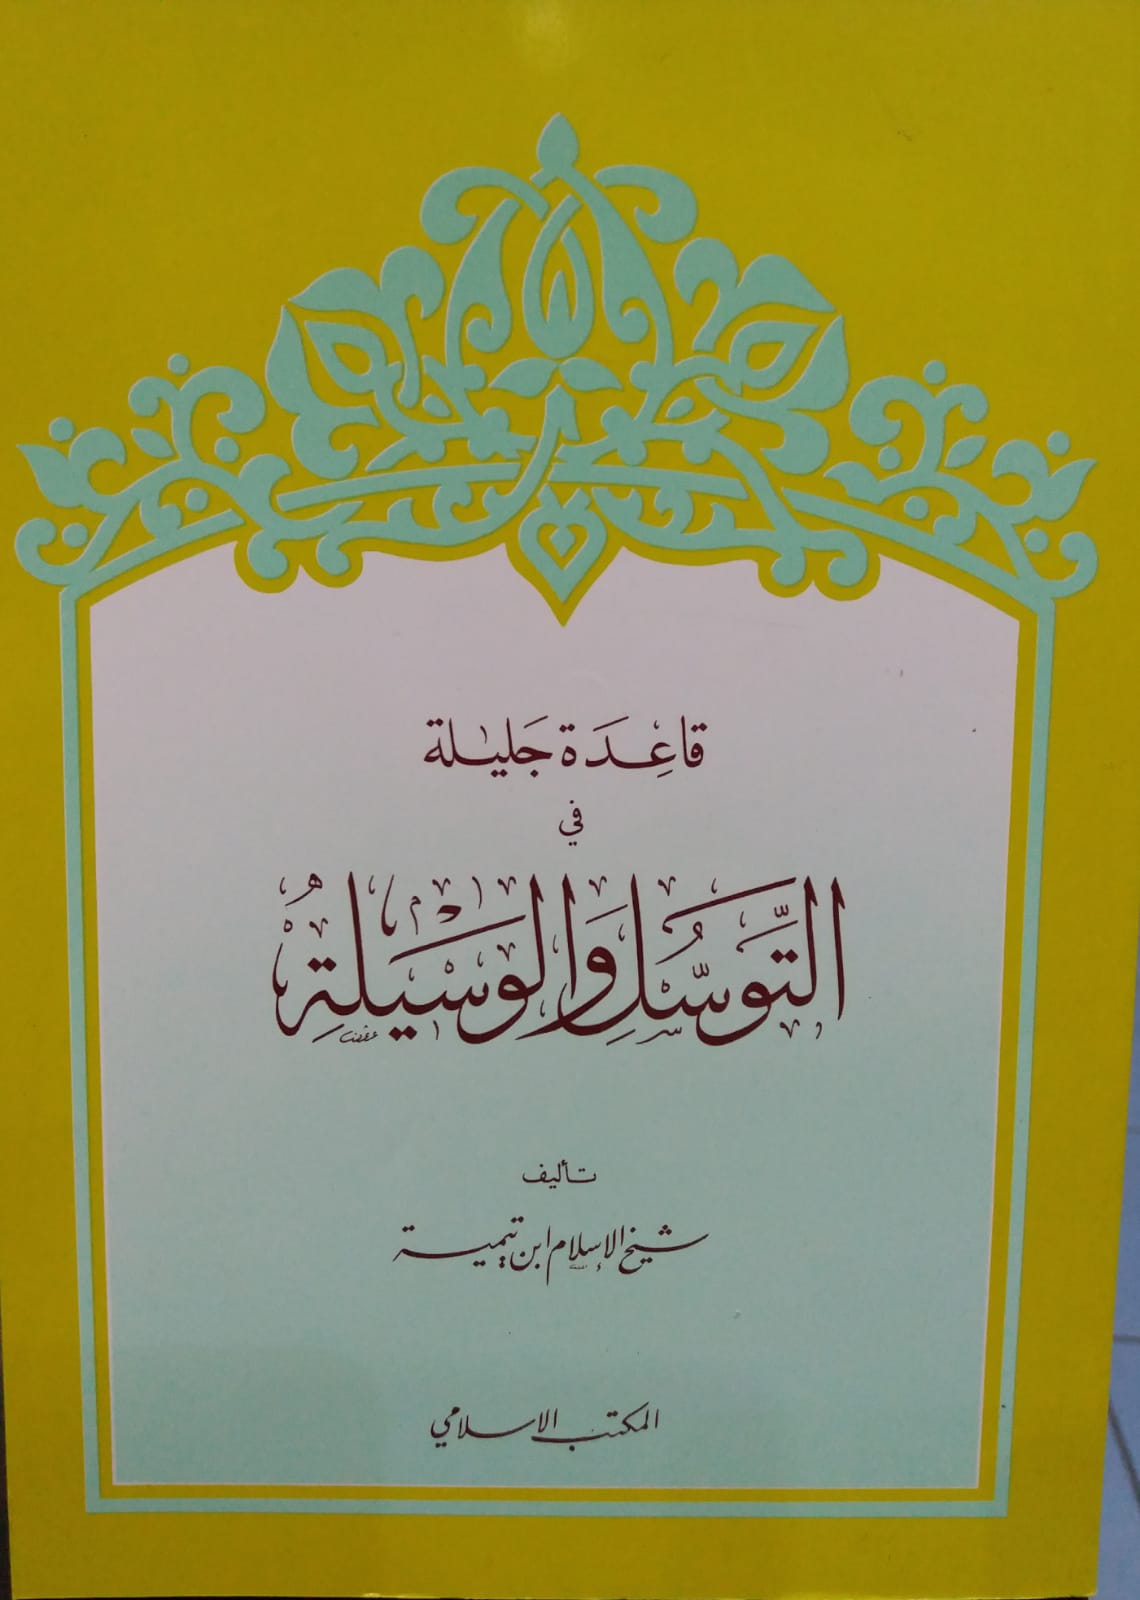 قَاعِدَة جَليلة
في
التَّوَسُّلِ وَالوَسِيلَةِ
تأليف
شيخ الإسلام ابن تيمية
المكتب الاسلامي